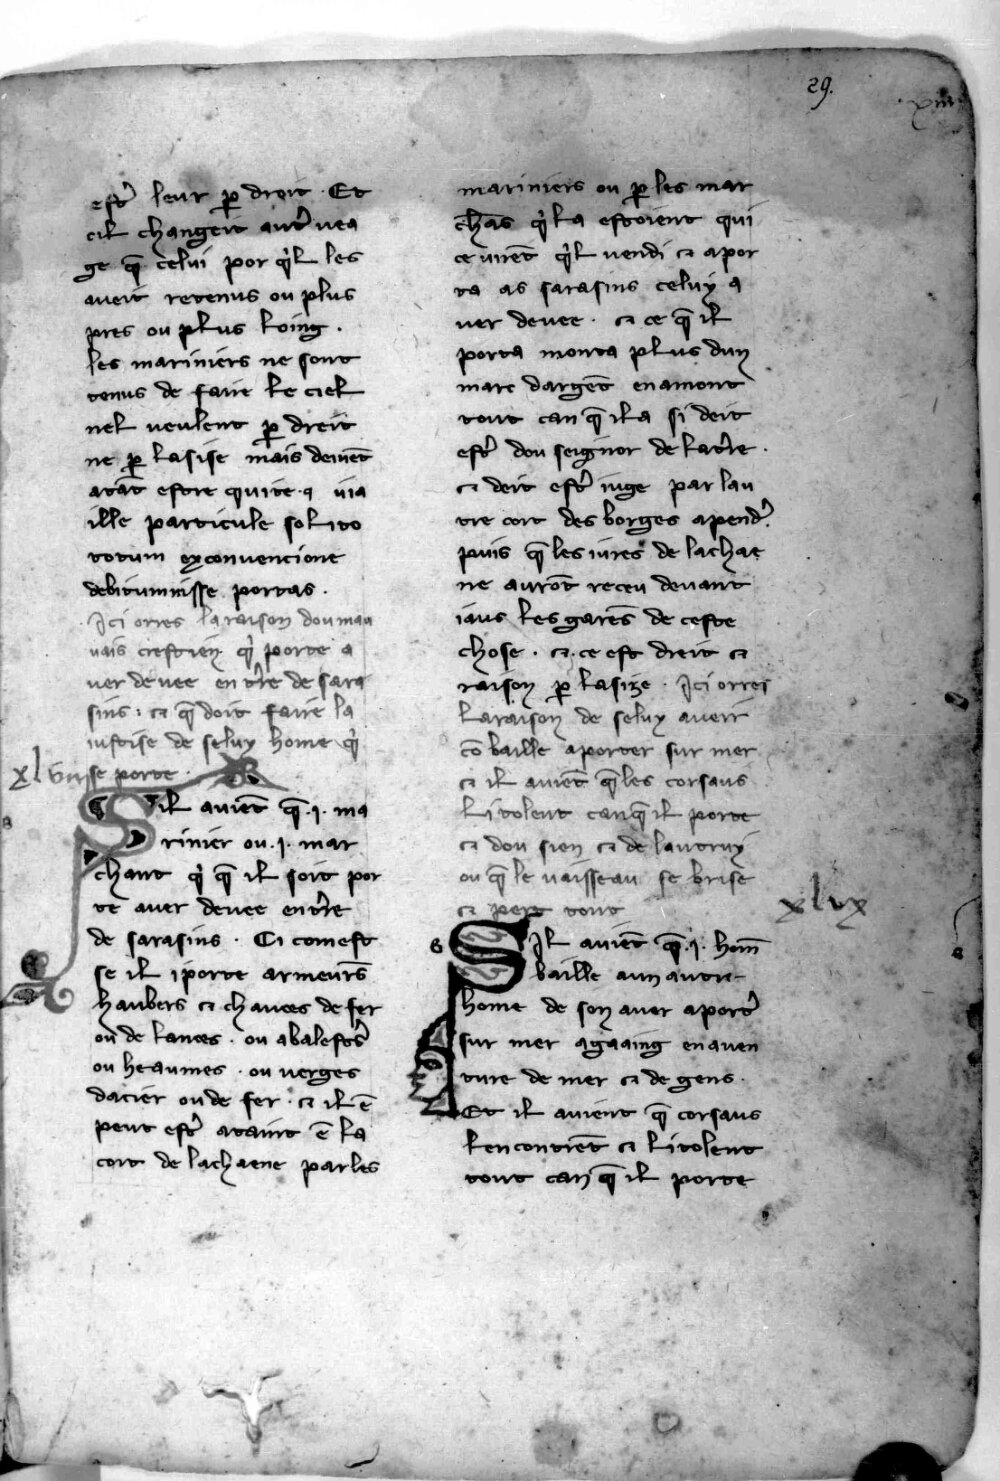 29.
xiii
estr̄ leur p̄ droit · Et
cil changeit autr̄ uea
ge q̄ celui por q̓l les
aueit retenus ou plus
pres ou plus loing ·
les mariniers ne sont
tenus de faire le ciel
nel ueulent p̄ dreit
ne p̄ lasise mais deiuēt
atāt estre quite · q̣ uia
ille particule solito
totum exconuencione
debitumisse portas ·
Ici orres laraison doumau
uais crestien q̓ porte a
uer deuee en tr̄re de sara
sins · ⁊ q̄ doit faire la
iustise de seluy home q̓
se porte ·
xlviii
Sil auiēt q̄ · i · ma
rinier ou · i · mar
chant q̓ q̄ il soit por
te auer deuee entr̄re
de sarasins · Ci comest
se il iporte armeurs̄
haubers ⁊ chauces de fer
ou de lances · ou abalestr̄s
ou heaumes · ou uerges
dacier oude fer · ⁊ il ē
peut estr̄ ataint ē la
cort de lachaene parles
mariniers ou p̄ les mar
chās q̓ la estoient qui
ce uirēt q̓l uendi ⁊ apor
ta as sarasins celuy a
uer deuee · ⁊ ce q̄ il
porta monta plus dun
marc dargēt enamont
tout can q̄ ila si deit
estr̄ dou seignor de latr̄re ·
⁊ deit estr̄ iuge par lau
tre cort des borges apendr̄ ·
puis q̄ les iures de lachae
ne aurōt receu deuant
iaus les garēs de ceste
chose · ⁊ ce est dreit ⁊
raison p̄ lasize · Ici orres
laraison de seluy auerr
cō baille aporter sur mer
⁊ il auiēt q̄ les corsaus
li tolent canq̄ il porte
⁊ dou sien ⁊ de lautruy
ou q̄ le uaisseau se brise
⁊ pert tout
xlvx
Sil auiēt q̄ · i · hom̄
baille aun autre
home de son auer aportr̄
sur mer agaaing en auen
ture de mer ⁊ de gens ·
Et il auient q̄ corsaus
lencontrēt ⁊ litolent
tout can q̄ il porte